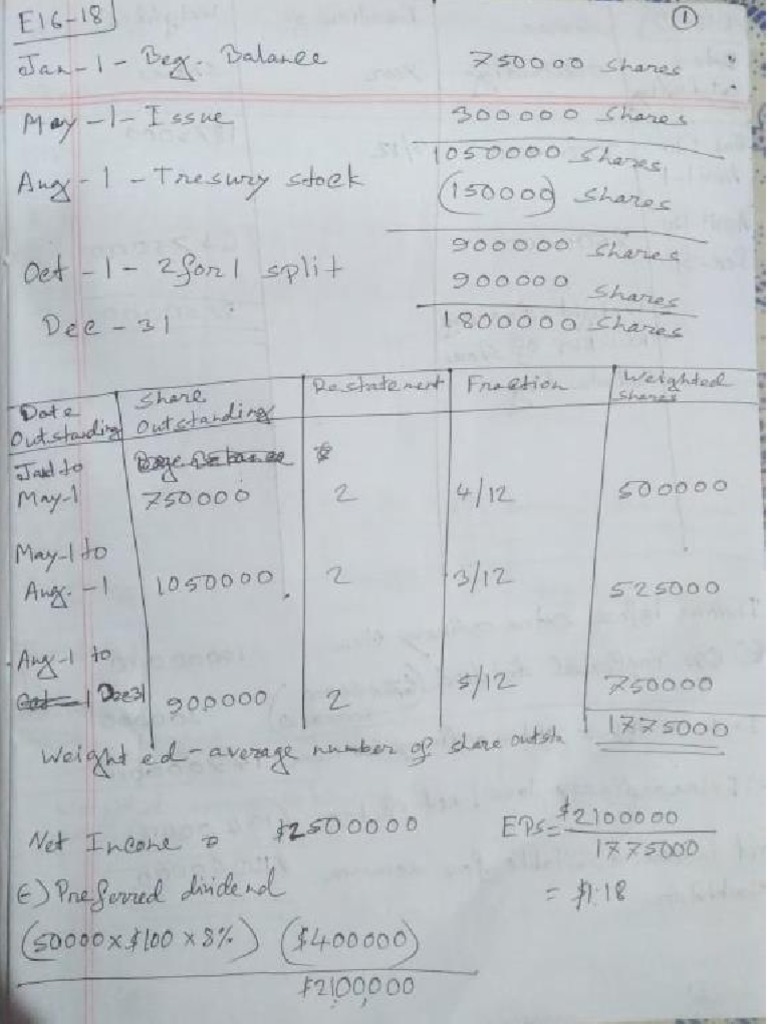 E16-18 1
Jan-1- Beg. Balance 750000 shares
May-1- Issue 300000 shares
1050000 shares
Aug-1-Tresury stock (150000) shares
900000 shares
Oct-1-2for1 split 900000 shares
Dec-31 1800000 shares
Date Outstanding Share Outstanding Restatement Fraction Weighted shares
Jan1 to May-1 750000 2 4/12 500000
May-1 to Aug.-1 1050000 2 3/12 525000
Aug-1 to Dec31 900000 2 5/12 750000
1775000
Weighted-average number of share outsta
Net Income = $2500000 EPS= $2100000
1775000
(-) Preferred dividend = $1.18
(50000x$100x8%) ($400000)
$2100000